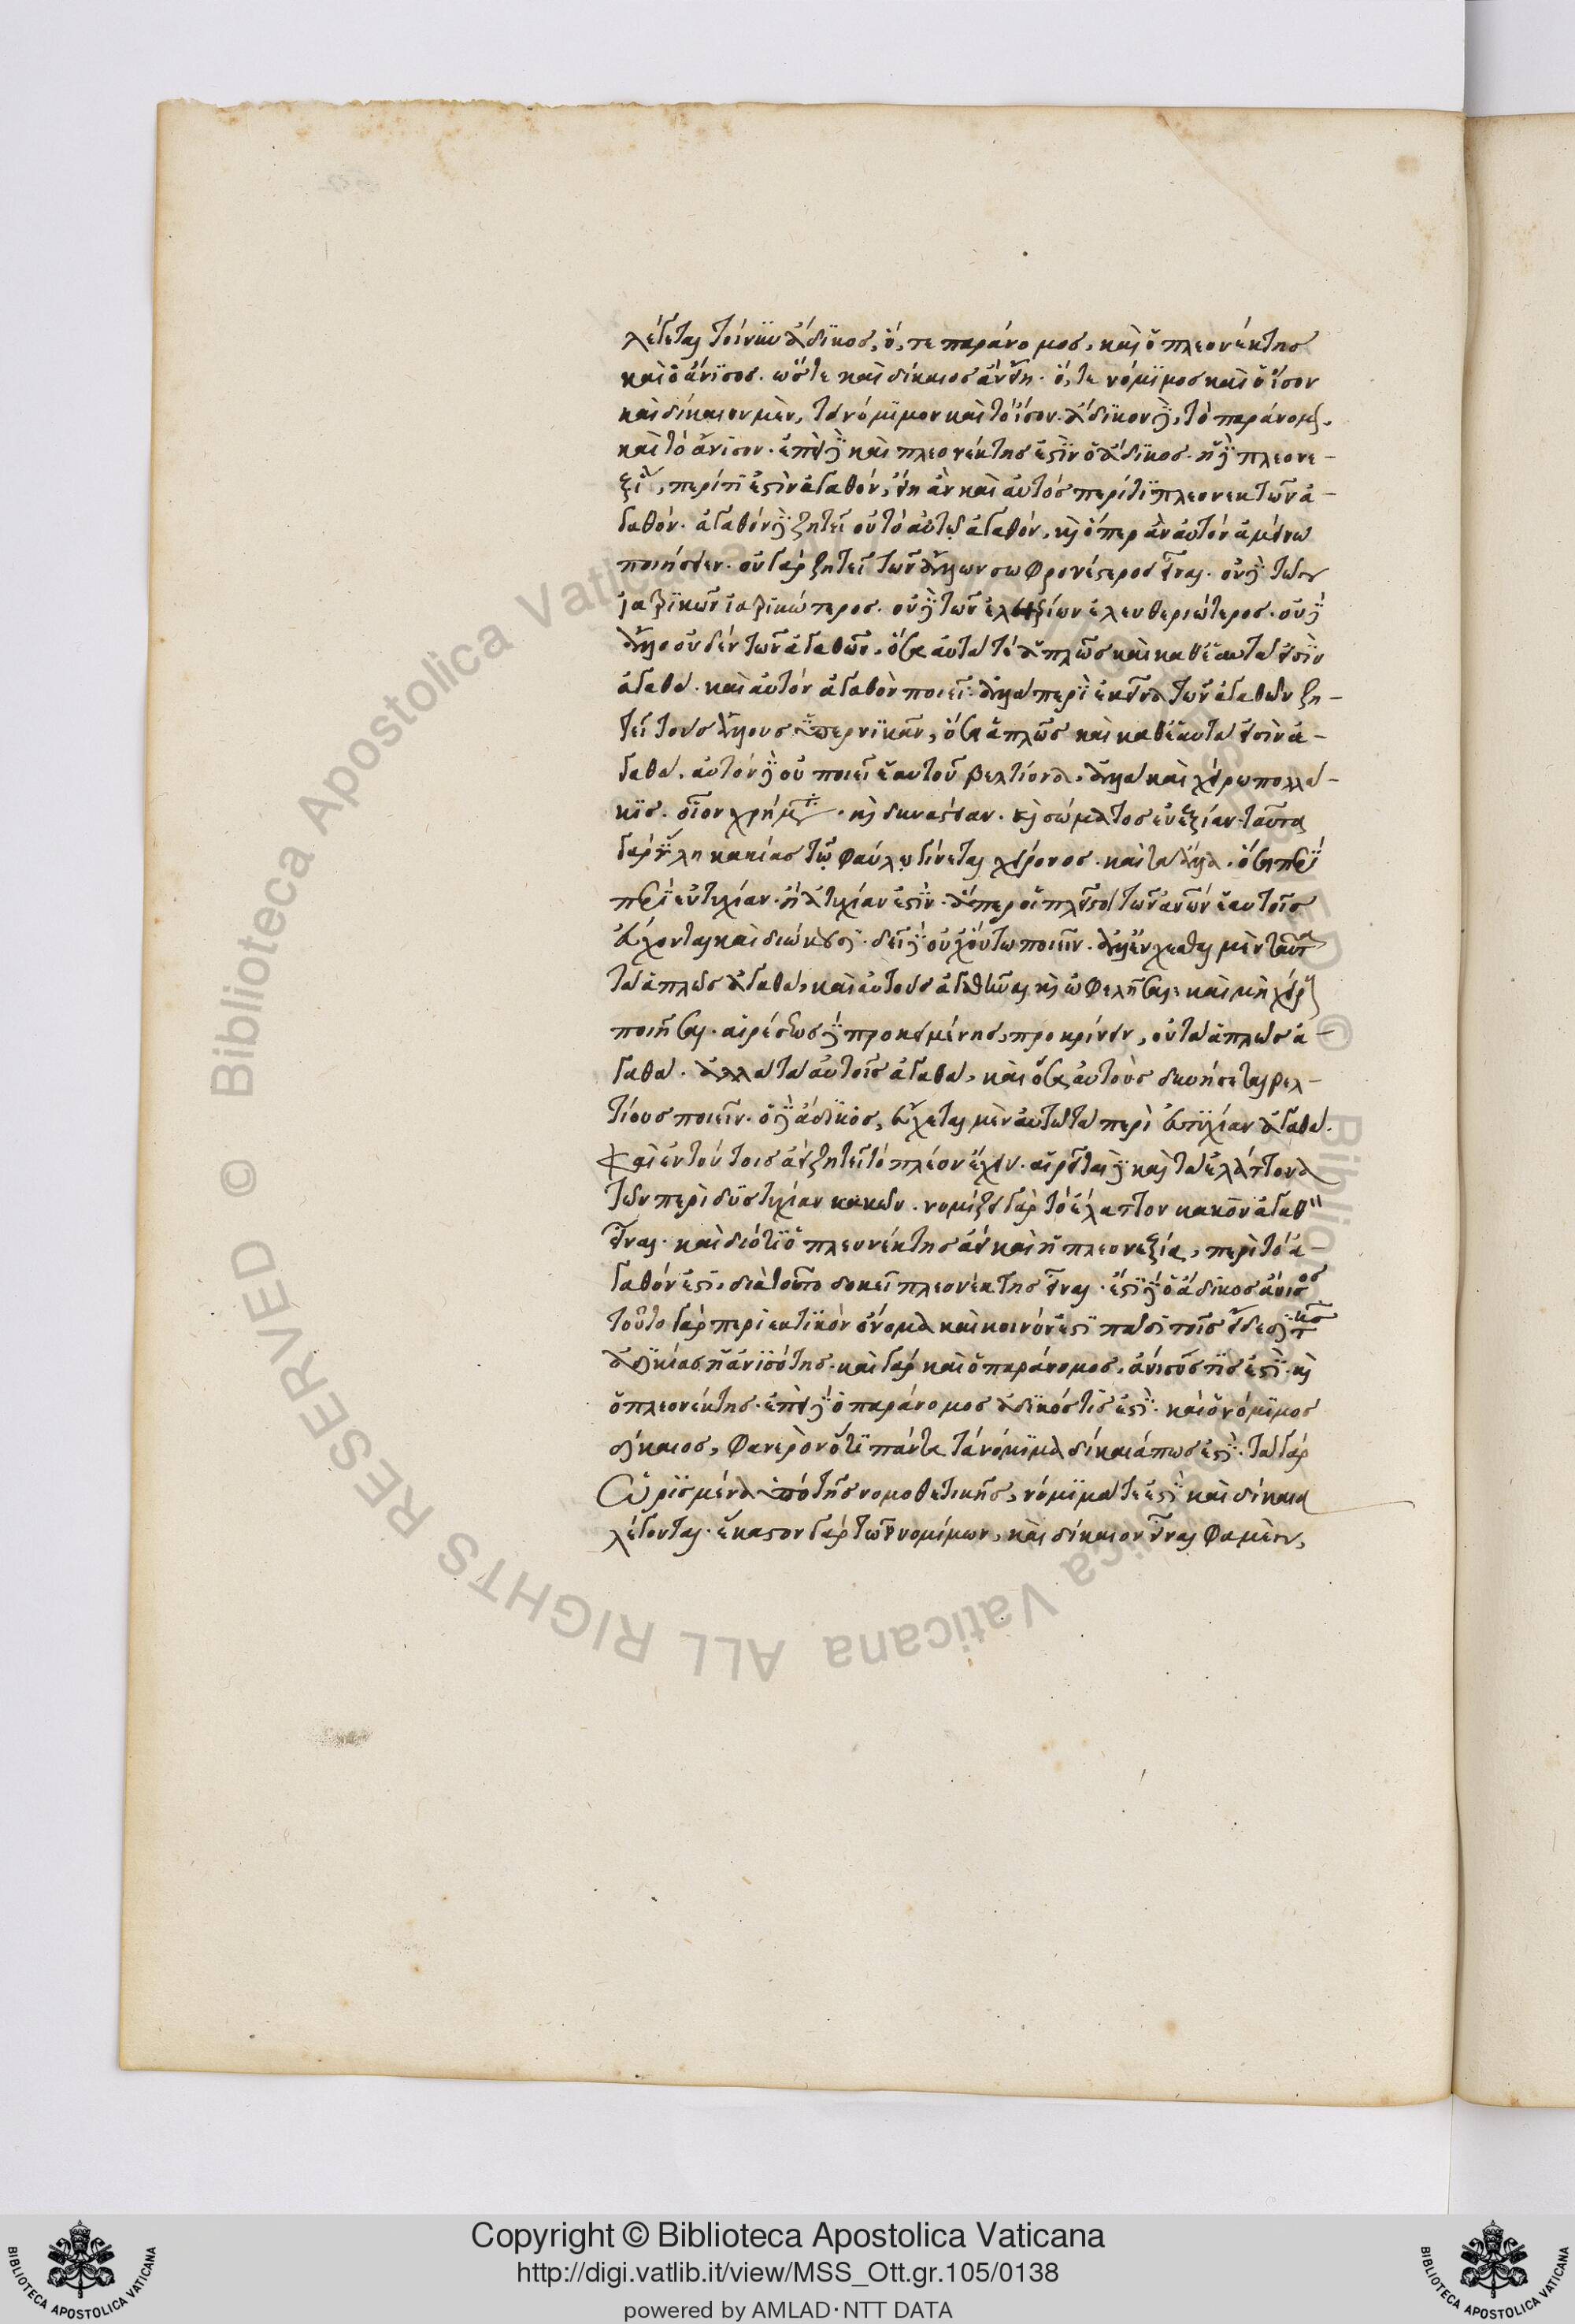 λέγεται τοίνυν ἄδικος, ὅ, τε παράνομος, καὶ ὁ πλεονέκτης
καὶ ὁ ἄνισος. ὥστε καὶ δίκαιος ἂν εἴη. ὅ, τε νόμιμος καὶ ὁ ἴσος
καὶ δίκαιον μὲν, τὸ νόμιμον καὶ τὸ ἴσον. ἄδικον δὲ, τὸ παράνομον.
καὶ τὸ ἄνισον. ἐπεὶ δὲ καὶ πλεονέκτης ἐστὶν ὁ ἄδικος. ἡ δὲ πλεονε-
ξία, περί τι ἐστὶν ἀγαθόν, εἴη ἂν καὶ αὐτὸς περί τι πλεονεκτῶν ἀ-
γαθόν. ἀγαθὸν δὲ ζητεῖ οὐ τὸ αὐτοῦ ἀγαθόν, καὶ ὅπερ ἂν αὐτὸν ἀμείνω
ποιήσειεν. οὐ γὰρ ζητεῖ τῶν ἄλλων σωφρονέστερος εἶναι. οὐδὲ τῶν
ἰατρικῶν ἰατρικώτερος. οὐδὲ τῶν ἐλευθερίων ἐλευθεριώτερος. οὐδὲ
ἄλλο οὐδὲν τῶν ἀγαθῶν, ὅσα αὐτά τε ἁπλῶς καὶ καθ' ἑαυτά εἰσιν
ἀγαθά. καὶ αὐτὸν ἀγαθὸν ποιεῖ. ἀλλὰ περὶ ἐκεῖνα τῶν ἀγαθῶν ζη-
τεῖ τοὺς ἄλλους ὑπερνικᾶν, ὅσα ἁπλῶς καὶ καθ' ἑαυτά εἰσιν ἀ-
γαθά. αὐτὸν δὲ οὐ ποιεῖ ἑαυτοῦ βελτίονα. ἀλλὰ καὶ χείρω πολλά-
κις. οἷον χρήματα. καὶ δυναστείαν. καὶ σώματος εὐεξίαν. ταῦτα
γὰρ ὕλη κακίας τῷ φαύλῳ γίνεται χείρονος. καὶ τὰ ἄλλα. ὅσα περὶ
περὶ εὐτυχίαν. ἢ ἀτυχίαν ἐστίν. ἅπερ οἱ πλεῖστοι τῶν ἀνθρώπων ἑαυτοῖς
εὔχονται καὶ διώκουσι. δεῖ δὲ οὐχ οὕτω ποιεῖν. ἀλλ' εὔχεσθαι μὲν ταῦτα
τὰ ἁπλῶς ἀγαθά, καὶ αὐτοὺς ἀγαθῦναι καὶ ὠφελῆσαι, καὶ μὴ χείρους
ποιῆσαι. αἱρέσεως δὲ προκειμένης, προκρίνειν, οὐ τὰ ἁπλῶς ἀ-
γαθά. ἀλλὰ τὰ αὐτοῖς ἀγαθά, καὶ ὅσα αὐτοὺς δυνήσεται βελ-
τίους ποιεῖν. ὁ δὲ ἄδικος, εὔχεται μὲν αὐτῷ τὰ περὶ εὐτυχίαν ἀγαθά.
καὶ ἐν τούτοις ἀεὶ ζητεῖ τὸ πλέον ἔχειν. αἱρεῖται δὲ καὶ τὰ ἐλάττονα
τῶν περὶ δυστυχίαν κακῶν. νομίζει γὰρ τὸ ἔλαττον κακὸν ἀγαθὸν
εἶναι. καὶ διότι ὁ πλεονέκτης ἀεὶ καὶ ἡ πλεονεξία, περὶ τὸ ἀ-
γαθόν ἐστι, διὰ τοῦτο δοκεῖ πλεονέκτης εἶναι. ἔστι δὲ ὁ ἄδικος ἄνισος
τοῦτο γὰρ περιεκτικὸν ὄνομα καὶ κοινόν ἐστι πᾶσι τοῖς εἴδεσι τῆς
ἀδικίας ἡ ἀνισότης. καὶ γὰρ καὶ ὁ παράνομος, ἄνισός τίς ἐστι. καὶ
ὁ πλεονέκτης. ἐπεὶ δὲ ὁ παράνομος ἄδικός τίς ἐστι. καὶ ὁ νόμιμος
δίκαιος, φανερὸν ὅτι πάντα τὰ νόμιμα δίκαιά πως ἐστί. τὰ γὰρ
ὡρισμένα ὑπὸ τῆς νομοθετικῆς, νόμιμά τε ἐστὶ καὶ δίκαια
λέγονται. ἕκαστον γὰρ τῶν νομίμων, καὶ δίκαιον εἶναι φαμὲν,
Copyright © Biblioteca Apostolica Vaticana
http://digi.vatlib.it/view/MSS_Ott.gr.105/0138
powered by AMLAD·NTT DATA